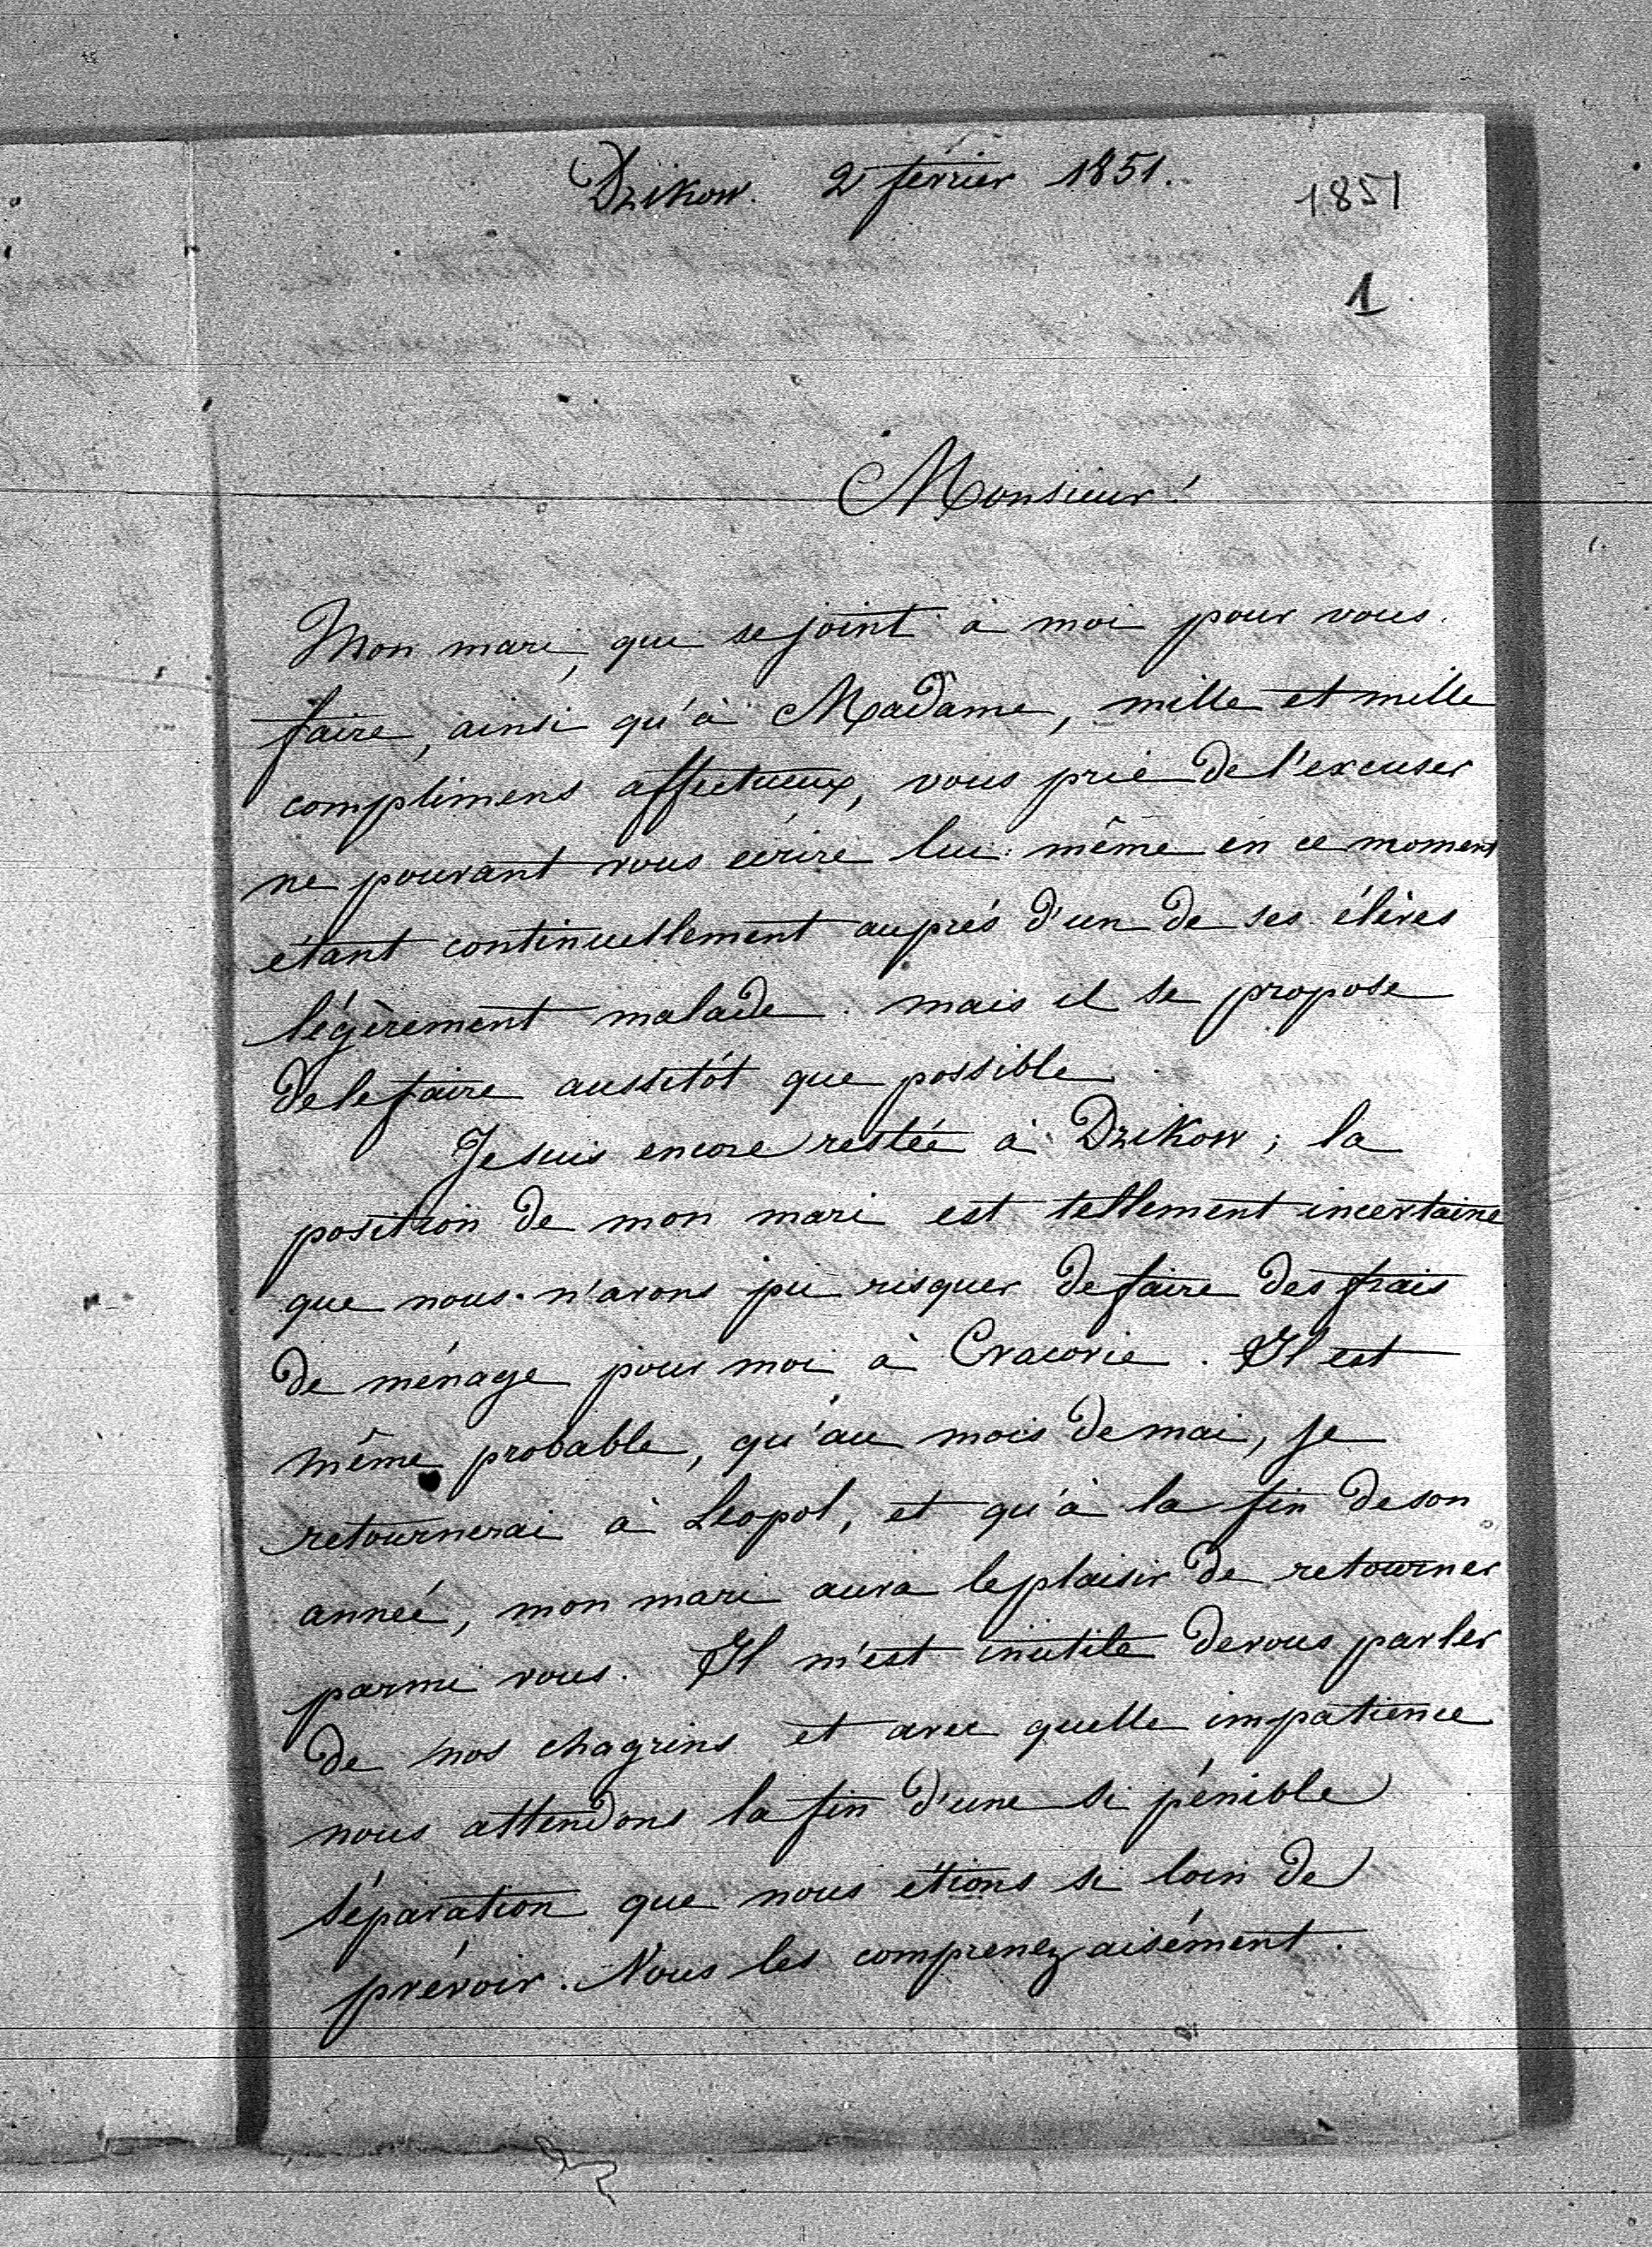 Dzikow. 2 février 1851.
1851
1
Monsieur!
Mon mari, que se joint à moi pour vous
faire, ainsi qu'à Madame, mille et mille
complimens affectueux, vous prie de l'excuser
ne pouvant vous écrire lui-même en ce moment
étant continuellement auprès d'un de ses élèves
légèrement malade. mais il se propose
de le faire aussitôt que possible.
Je suis encore restée à Dzikow; la
position de mon mari est tellement incertaine
que nous n'avons pu risquer de faire des frais
de ménage pour moi à Cracovie. Il est
même probable, qu'au mois de mai, je
retournerai à Léopol, et qu'à la fin de son
anneé, mon mari aura le plaisir de retourner
parmi vous. Il m'est inutile de vous parler
de nos chagrins et avec quelle impatience
nous attendons la fin d'une si pénible
séparation que nous étions si loin de
prévoir. Vous les comprenez aisément.